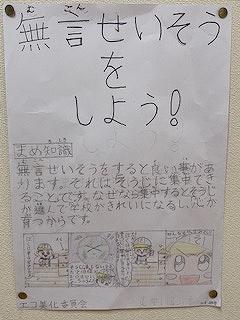 無言せいそう
を
しよう!
まめ知識
無言せいそうをすると良い事があ
ります。それはそうじに集中でき
ることです。なぜなら集中するとそうじ
が進んで学校がきれいになるし、心が
育つからです。
エコ美化委員会